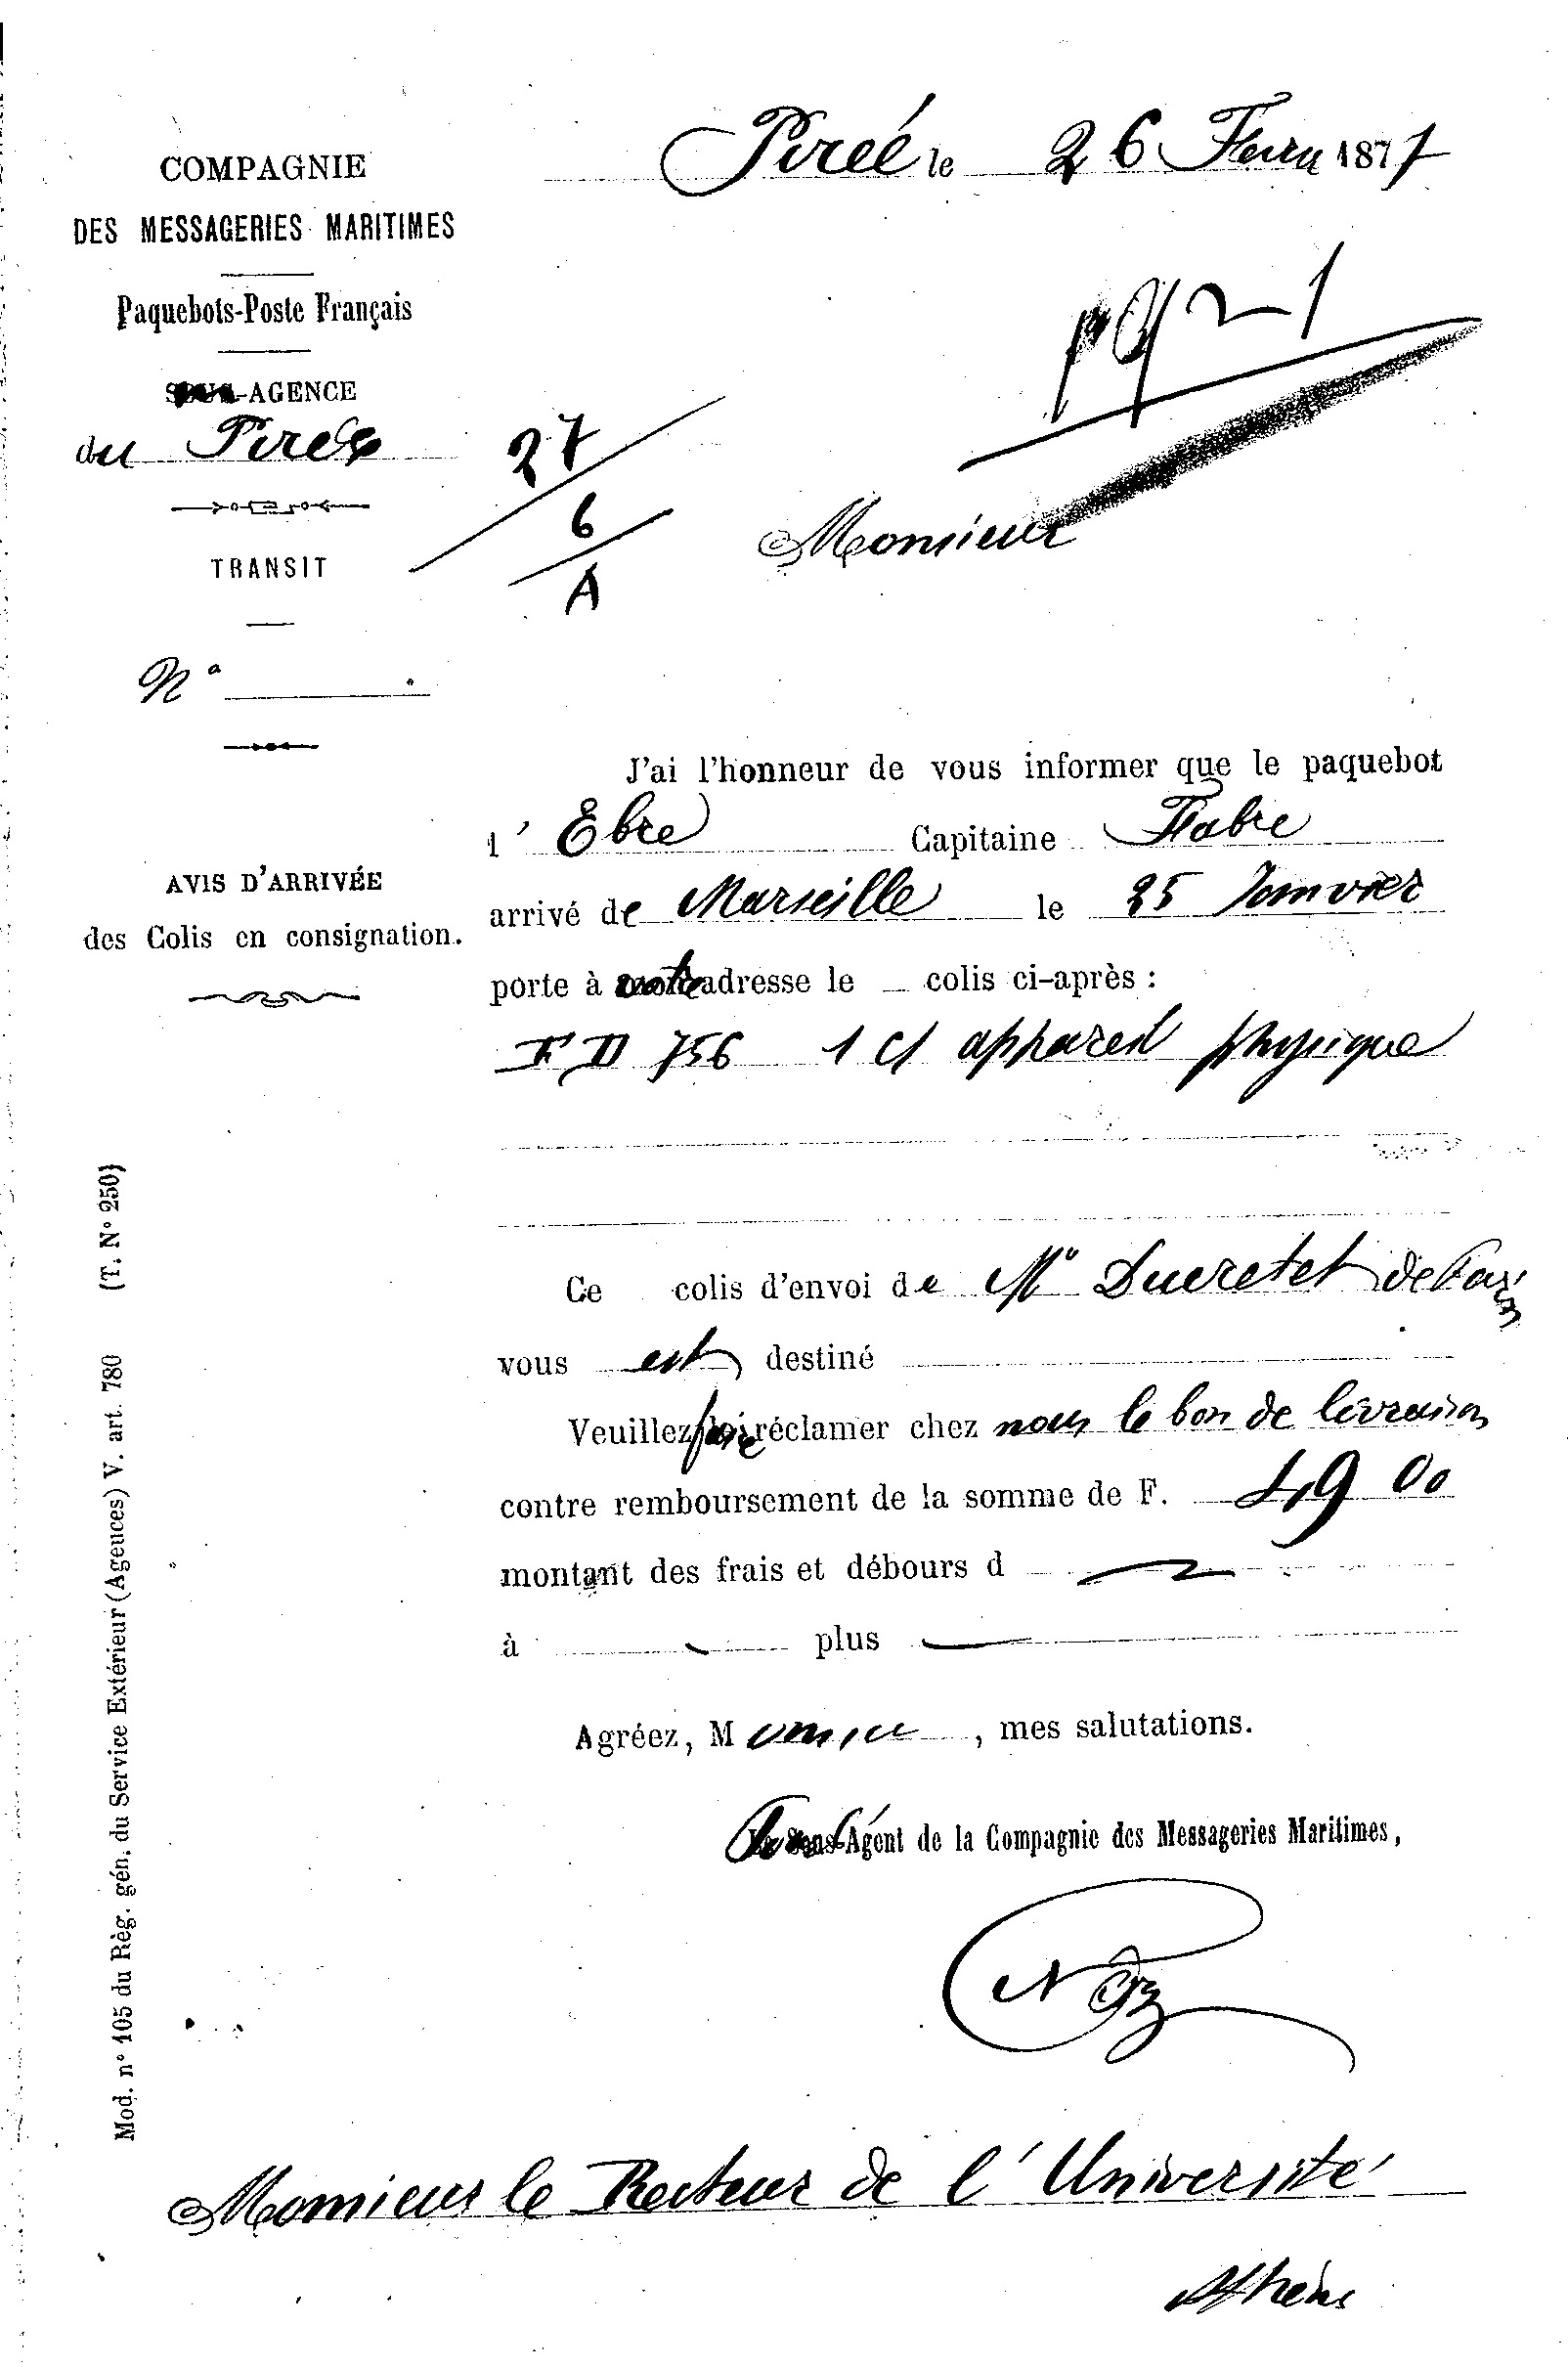 COMPAGNIE
DES MESSAGERIES MARITIMES
Paquebots-Poste Français
-AGENCE
du Pirée
TRANSIT
N°
AVIS D'ARRIVÉE
des Colis en consignation.
Pirée le 26 1877
27
6
A
Monsieur
J'ai l'honneur de vous informer que le paquebot
l' Ebre Capitaine Fabre
arrivé de Marseille le 25 Janvier
porte à votre adresse le colis ci-après :
FD 756 1 C/ appareil physique
Ce colis d'envoi de Mr Ducretet de Paris
vous est destiné
Veuillez faire réclamer chez nous le bon de livraison
contre remboursement de la somme de F. 49 00
montant des frais et débours d
à plus
Agréez, Monsieur, mes salutations.
Agent de la Compagnie des Messageries Maritimes,
Monsieur le Recteur de l'Université
Athènes
Mod. n° 105 du Règ. gén. du Service Extérieur (Agences) V. art. 780 (T. N° 250)